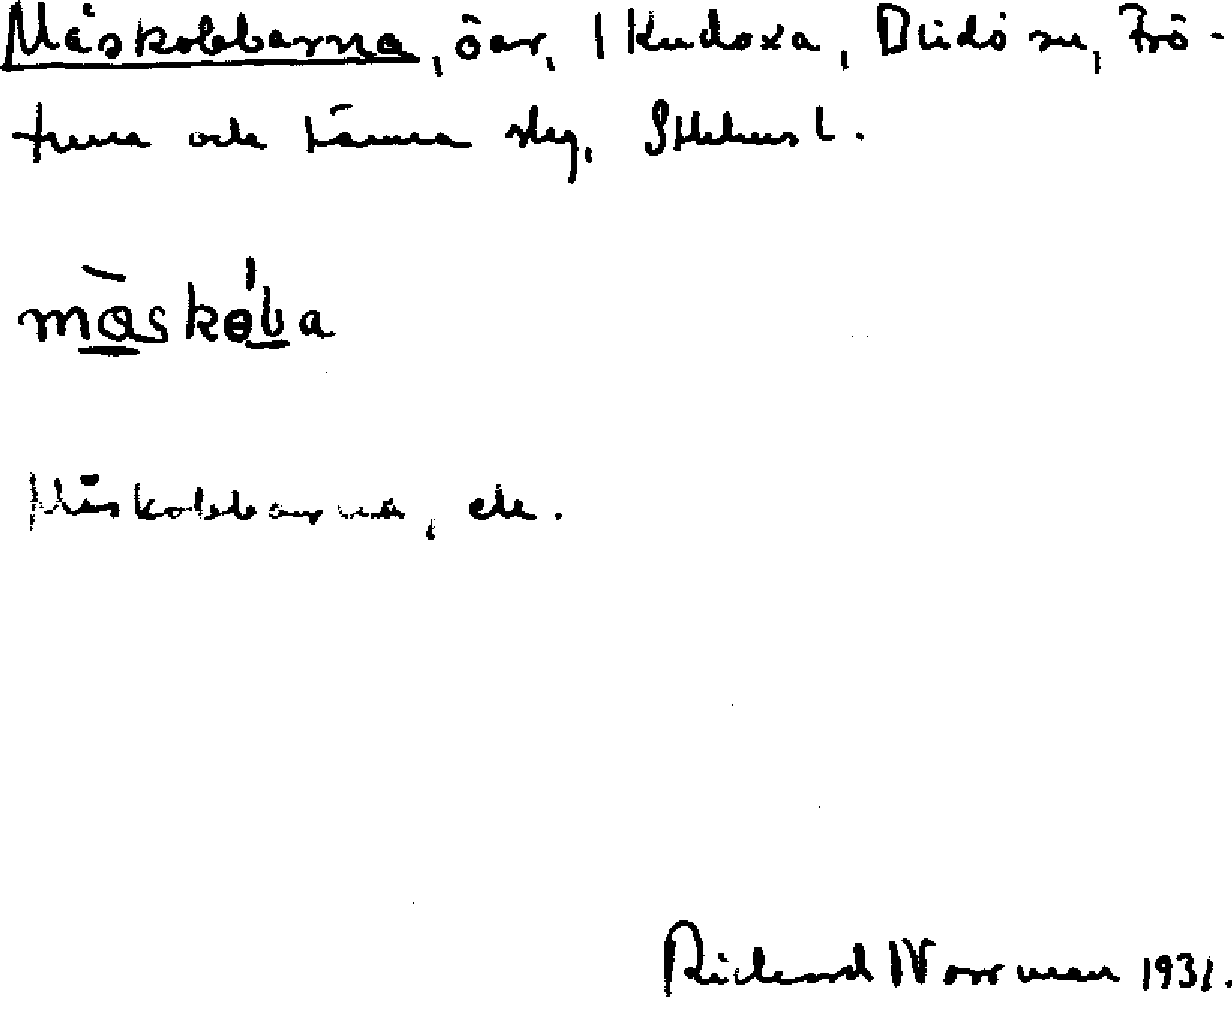 Måskobbarna, öar, i Kudoxa, Blidö sn, Frö-
tuna och Länna skg, Sthlms l.
måskobba
Måskobbarna, ek.
Rickard Norrman 1931.